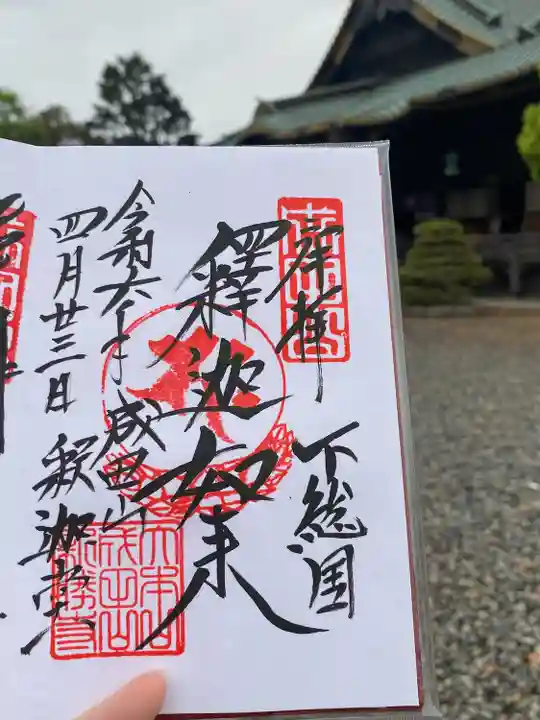 奉拝
下総国
釋迦如来
令和六年
成田山
四月廿三日
釈迦堂